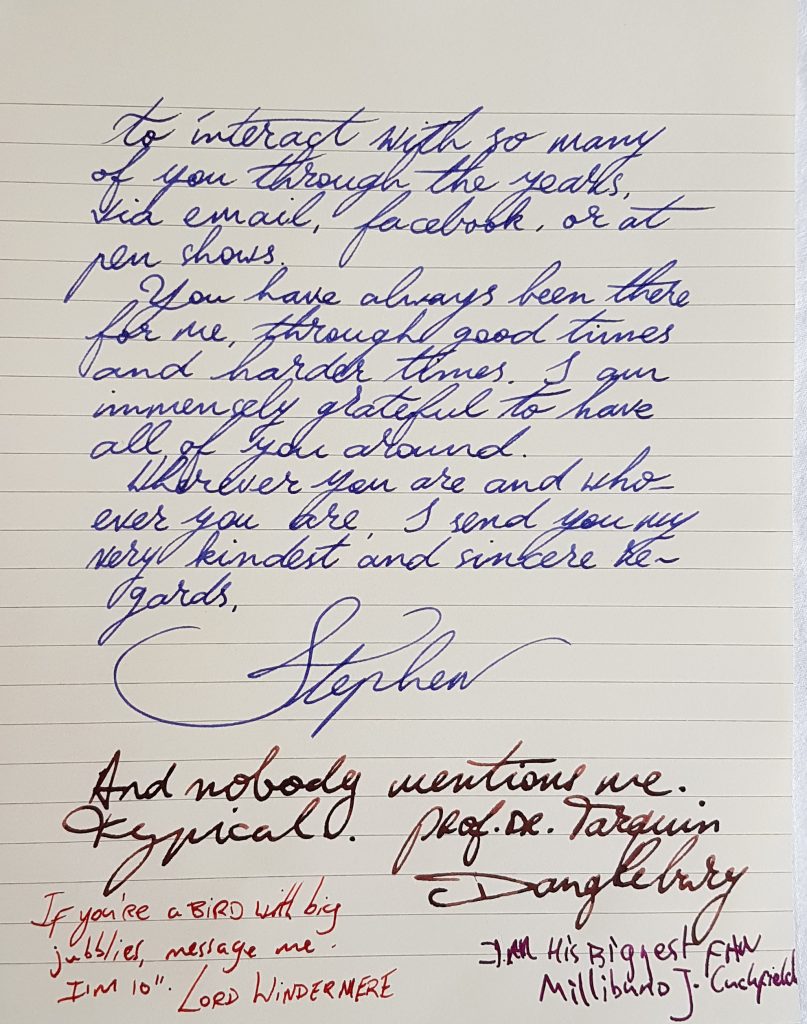 to interact with so many
of you through the years,
via email, facebook, or at
pen shows.
You have always been there
for me, through good times
and harder times. I am
immensely grateful to have
all of you around.
Wherever you are and who-
ever you are, I send you my
very kindest and sincere re-
gards,
Stephen
And nobody mentions me.
Typical. Prof. Dr. Tarquin
Danglebury
If you're a BIRD with big
jubblies, message me.
I'm 10". LORD WINDERMERE
I am His Biggest FAN
Millibund J. Cuckfield